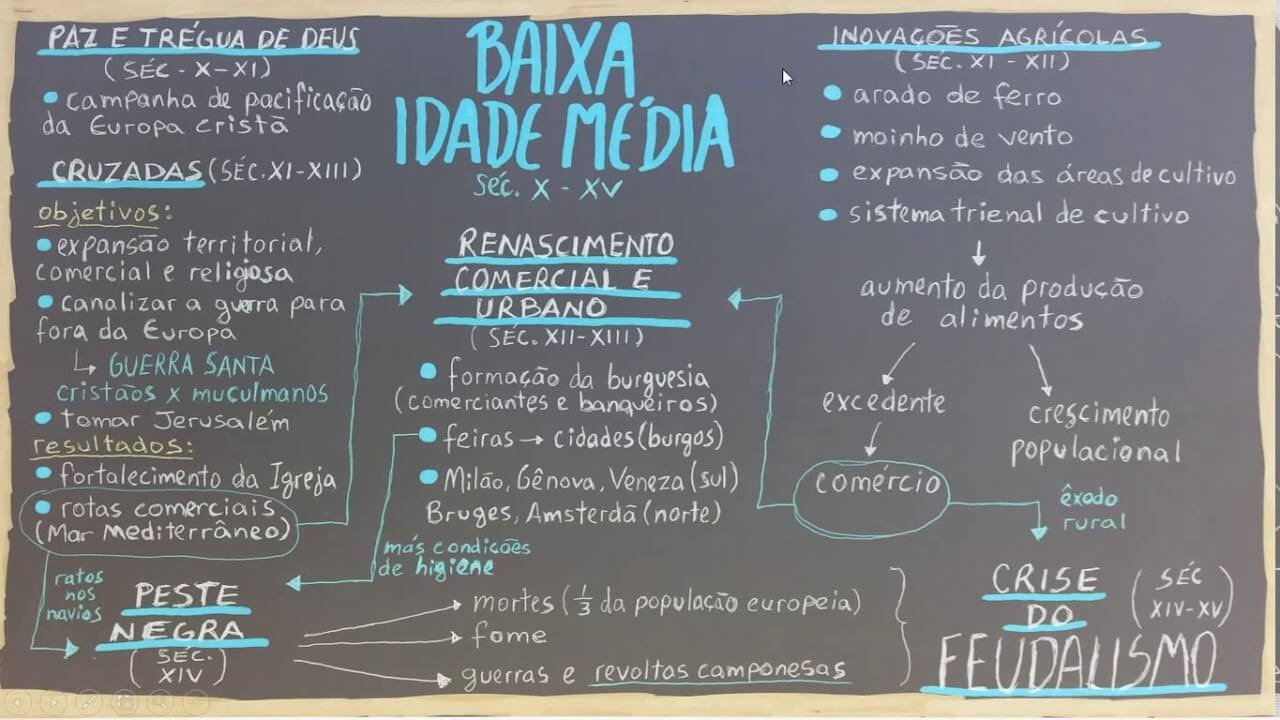 PAZ E TRÉGUA DE DEUS
(SÉC - X-XI)
• campanha de pacificação
da Europa cristã
CRUZADAS (SÉC.XI-XIII)
objetivos:
• expansão territorial,
comercial e religiosa
• canalizar a guerra para
fora da Europa
↳ GUERRA SANTA
cristãos x muçulmanos
• tomar Jerusalém
resultados:
• fortalecimento da Igreja
• rotas comerciais
(Mar Mediterrâneo)
ratos
nos
navios
PESTE
NEGRA
(SÉC.
XIV)
BAIXA
IDADE MÉDIA
séc. X - XV
RENASCIMENTO
COMERCIAL E
URBANO
(SÉC. XII-XIII)
• formação da burguesia
(comerciantes e banqueiros)
• feiras → cidades (burgos)
• Milão, Gênova, Veneza (sul)
Bruges, Amsterdã (norte)
más condições
de higiene
mortes (1/3 da população europeia)
fome
guerras e revoltas camponesas
INOVAÇÕES AGRÍCOLAS
(SÉC. XI - XII)
• arado de ferro
• moinho de vento
• expansão das áreas de cultivo
• sistema trienal de cultivo
aumento da produção
de alimentos
excedente
crescimento
populacional
comércio
êxodo
rural
CRISE
DO
FEUDALISMO
(SÉC
XIV-XV)